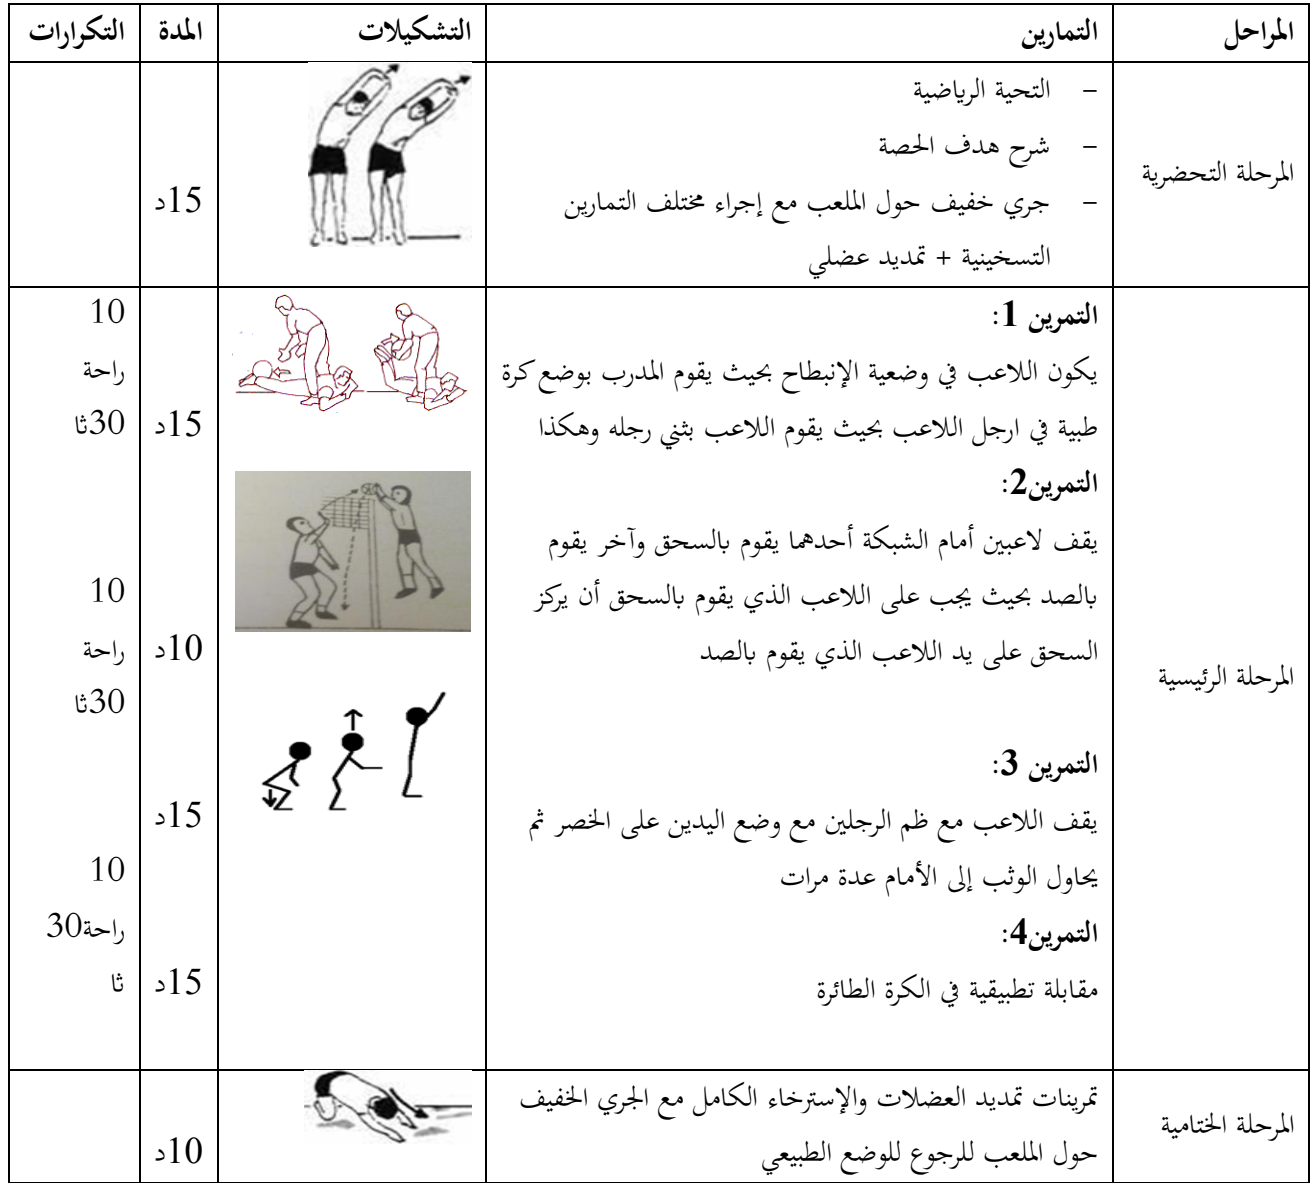 المراحل التمارين التشكيلات المدة التكرارات
المرحلة التحضرية
– التحية الرياضية
– شرح هدف الحصة
– جري خفيف حول الملعب مع إجراء مختلف التمارين
التسخينية + تمديد عضلي
15د
المرحلة الرئيسية
التمرين 1:
يكون اللاعب في وضعية الإنبطاح بحيث يقوم المدرب بوضع كرة
طبية في ارجل اللاعب بحيث يقوم اللاعب بثني رجله وهكذا
التمرين2:
يقف لاعبين أمام الشبكة أحدهما يقوم بالسحق وآخر يقوم
بالصد بحيث يجب على اللاعب الذي يقوم بالسحق أن يركز
السحق على يد اللاعب الذي يقوم بالصد
التمرين 3:
يقف اللاعب مع ظم الرجلين مع وضع اليدين على الخصر ثم
يحاول الوثب إلى الأمام عدة مرات
التمرين4:
مقابلة تطبيقية في الكرة الطائرة
15د
10د
15د
15د
10
راحة
30ثا
10
راحة
30ثا
10
راحة30
ثا
المرحلة الختامية
تمرينات تمديد العضلات والإسترخاء الكامل مع الجري الخفيف
حول الملعب للرجوع للوضع الطبيعي
10د